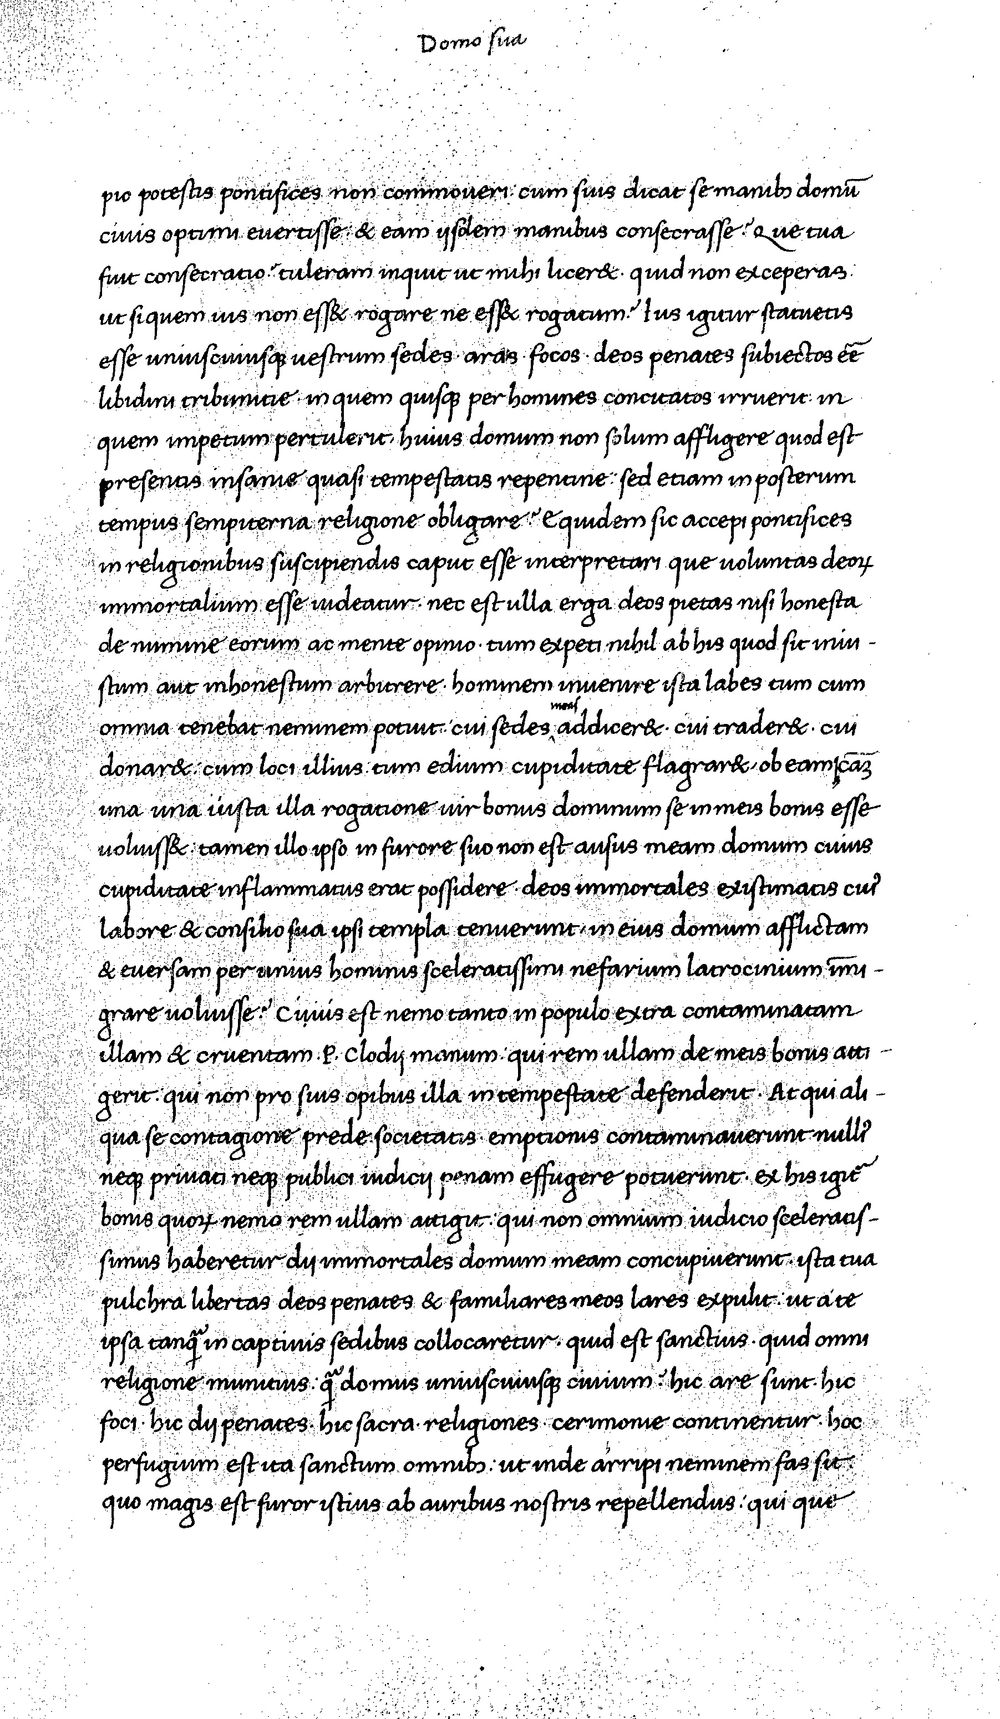 Domo sua
pio potestis pontifices non commoueri cum suis dicat se manibꝫ domū
ciuis optimi euertisse: & eam ijsdem manibus consecrasse? Que tua
fuit consecratio? tuleram inquit ut mihi licer&. quid non exceperas
ut si quem ius non ess& rogare ne ess& rogatum? Ius igitur statuetis
esse uniuscuiusqꝫ uestrum sedes. aras focos. deos penates subiectos eē
libidini tribunitie. in quem quisqꝫ per homines concitatos irruerit in
quem impetum pertulerit. huius domum non solum affligere quod est
presentis insanie quasi tempestatis repentine: sed etiam in posterum
tempus sempiterna religione obligare? Equidem sic accepi pontifices
in religionibus suscipiendis caput esse interpretari que uoluntas deoꝝ
immortalium esse uideatur. nec est ulla erga deos pietas nisi honesta
de numine eorum ac mente opinio. tum expeti nihil ab his quod sit iniu-
stum aut inhonestum arbitrere. hominem inuenire ista labes tum cum
omnia tenebat neminem potuit. cui sedes meas addicer&. cui trader&. cui
donar&. cum loci illius tum edium cupiditate flagrar&. ob eam cāꝫ
una una iusta illa rogatione uir bonus dominum se in meis bonis esse
uoluiss&. tamen illo ipso in furore suo non est ausus meam domum cuius
cupiditate inflammatus erat possidere. deos immortales existimatis cuiꝰ
labore & consilio sua ipsi templa tenuerunt. in eius domum afflictam
& euersam per unius hominis sceleratissimi nefarium latrocinium īmi-
grare uoluisse? Ciuiis est nemo tanto in populo extra contaminatam
illam & cruentam P. Clodij manum. qui rem ullam de meis bonis atti-
gerit. qui non pro suis opibus illa in tempestate defenderit. At qui ali-
qua se contagione prede societatis emptionis contaminauerunt nulliꝰ
neqꝫ priuati neqꝫ publici iudicij penam effugere potuerunt. ex his igit̃
bonis quoꝝ nemo rem ullam attigit. qui non omnium iudicio sceleratis-
simus haberetur dij immortales domum meam concupiuerunt. ista tua
pulchra libertas deos penates & familiares meos lares expulit. ut a te
ipsa tanq̃ in captiuis sedibus collocaretur. quid est sanctius. quid omni
religione munitius. q̃ domus uniuscuiusqꝫ ciuium? hic are sunt. hic
foci. hic dij penates. hic sacra. religiones. cerimonie continentur. hoc
perfugium est ita sanctum omnibꝫ: ut inde arripi neminem fas sit:
quo magis est furor istius ab auribus nostris repellendus: qui que